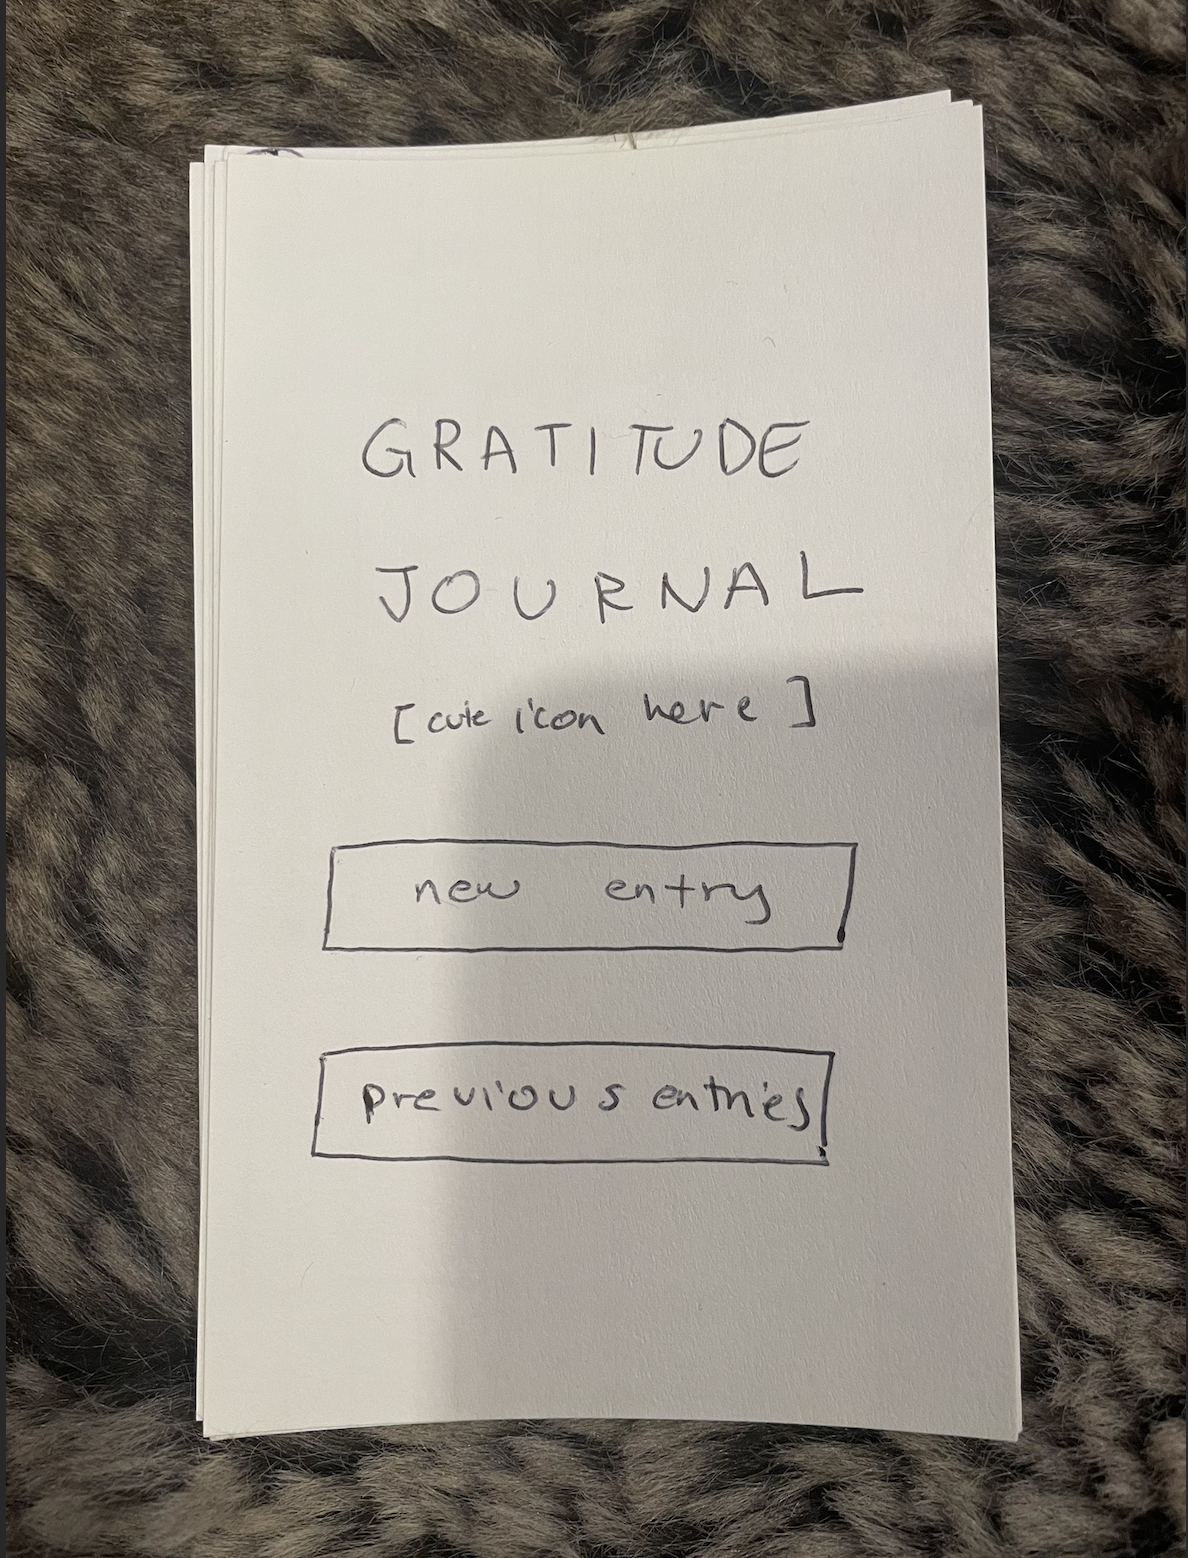 GRATITUDE
JOURNAL
[cute icon here]
new entry
previous entries